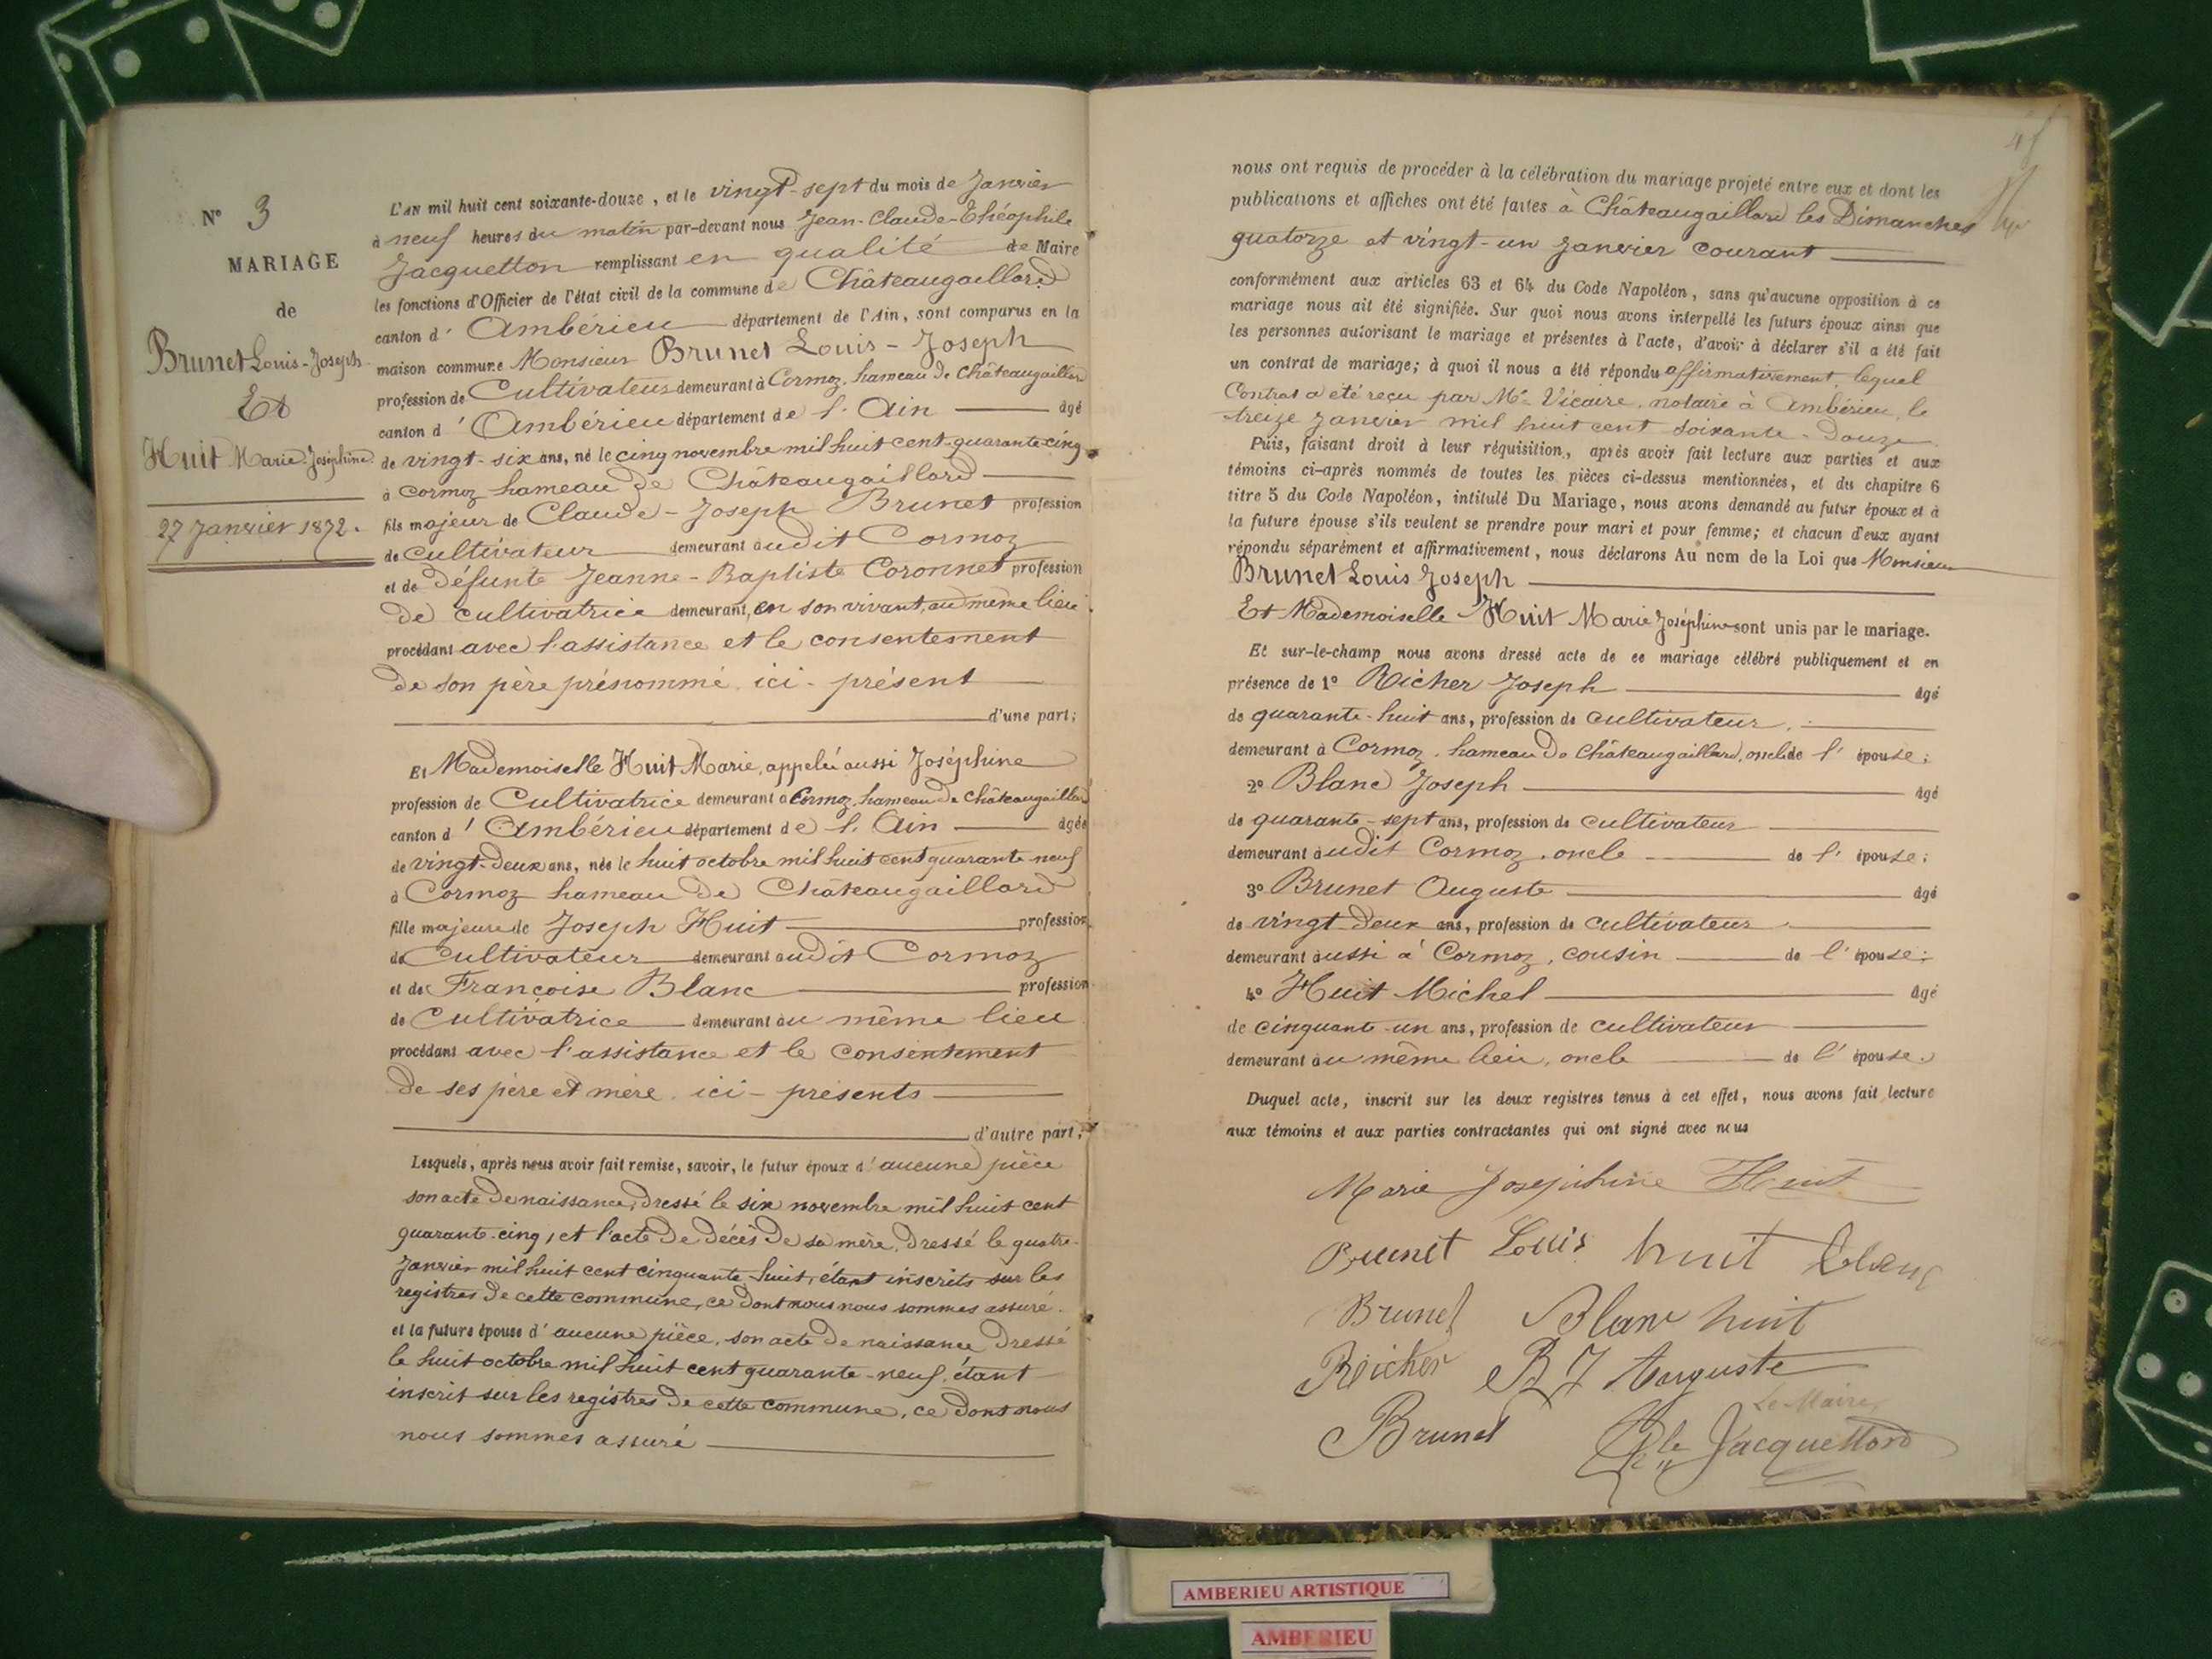 N° 3
MARIAGE
de
Brunet Louis-Joseph
Et
Huit Marie-Joséphine
27 Janvier 1872.
L'AN mil huit cent soixante-douze, et le vingt-sept du mois de Janvier
à neuf heures du matin par-devant nous Jean-Claude-Théophile
Jacquetton remplissant en qualité de Maire
les fonctions d'Officier de l'état civil de la commune de Châteaugaillard
canton d' Ambérieu département de l'Ain, sont comparus en la
maison commune Monsieur Brunet Louis-Joseph
profession de Cultivateur demeurant à Cormoz, hameau de Châteaugaillard
canton d' Ambérieu département de l'Ain âgé
de vingt-six ans, né le cinq novembre mil huit cent quarante-cinq
à Cormoz hameau de Châteaugaillard
fils majeur de Claude-Joseph Brunet profession
de cultivateur demeurant audit Cormoz
et de défunte Jeanne-Baptiste Coronnet profession
de cultivatrice demeurant, en son vivant, au même lieu
procédant avec l'assistance et le consentement
de son père prénommé, ici-présent
d'une part;
Et Mademoiselle Huit Marie, appelée aussi Joséphine
profession de Cultivatrice demeurant à Cormoz, hameau de Châteaugaillard
canton d' Ambérieu département de l'Ain âgée
de vingt-deux ans, née le huit octobre mil huit cent quarante-neuf
à Cormoz hameau de Châteaugaillard
fille majeure de Joseph Huit profession
de Cultivateur demeurant audit Cormoz
et de Françoise Blanc profession
de Cultivatrice demeurant au même lieu
procédant avec l'assistance et le consentement
de ses père et mère, ici-présents
d'autre part;
Lesquels, après nous avoir fait remise, savoir, le futur époux d'aucune pièce
son acte de naissance, dressé le six novembre mil huit cent
quarante-cinq, et l'acte de décès de sa mère, dressé le quatre
Janvier mil huit cent cinquante-huit, étant inscrits sur les
registres de cette commune, ce dont nous nous sommes assuré.
et la future épouse d'aucune pièce, son acte de naissance dressé
le huit octobre mil huit cent quarante-neuf, étant
inscrit sur les registres de cette commune, ce dont nous
nous sommes assuré
nous ont requis de procéder à la célébration du mariage projeté entre eux et dont les
publications et affiches ont été faites à Châteaugaillard les Dimanches
quatorze et vingt-un Janvier courant
conformément aux articles 63 et 64 du Code Napoléon, sans qu'aucune opposition à ce
mariage nous ait été signifiée. Sur quoi nous avons interpellé les futurs époux ainsi que
les personnes autorisant le mariage et présentes à l'acte, d'avoir à déclarer s'il a été fait
un contrat de mariage; à quoi il nous a été répondu affirmativement, lequel
Contrat a été reçu par Me Vicaire, notaire à Ambérieu, le
treize Janvier mil huit cent soixante-douze
Puis, faisant droit à leur réquisition, après avoir fait lecture aux parties et aux
témoins ci-après nommés de toutes les pièces ci-dessus mentionnées, et du chapitre 6
titre 5 du Code Napoléon, intitulé Du Mariage, nous avons demandé au futur époux et à
la future épouse s'ils veulent se prendre pour mari et pour femme; et chacun d'eux ayant
répondu séparément et affirmativement, nous déclarons Au nom de la Loi que Monsieur
Brunet Louis Joseph
Et Mademoiselle Huit Marie Joséphine sont unis par le mariage.
Et sur-le-champ nous avons dressé acte de ce mariage célébré publiquement et en
présence de 1° Richer Joseph âgé
de quarante-huit ans, profession de cultivateur,
demeurant à Cormoz, hameau de Châteaugaillard, oncle de l' épouse;
2° Blanc Joseph âgé
de quarante-sept ans, profession de cultivateur
demeurant audit Cormoz, oncle de l' épouse;
3° Brunet Auguste âgé
de vingt-deux ans, profession de cultivateur
demeurant aussi à Cormoz, cousin de l' épouse;
4° Huit Michel âgé
de cinquante-un ans, profession de cultivateur
demeurant au même lieu, oncle de l' épouse.
Duquel acte, inscrit sur les deux registres tenus à cet effet, nous avons fait lecture
aux témoins et aux parties contractantes qui ont signé avec nous
Marie Josephine Huit
Brunet Louis huit blanc
Brunet Blanc huit
Richer B J Auguste
Le Maire,
Brunet Jacquetton
AMBERIEU ARTISTIQUE
AMBERIEU